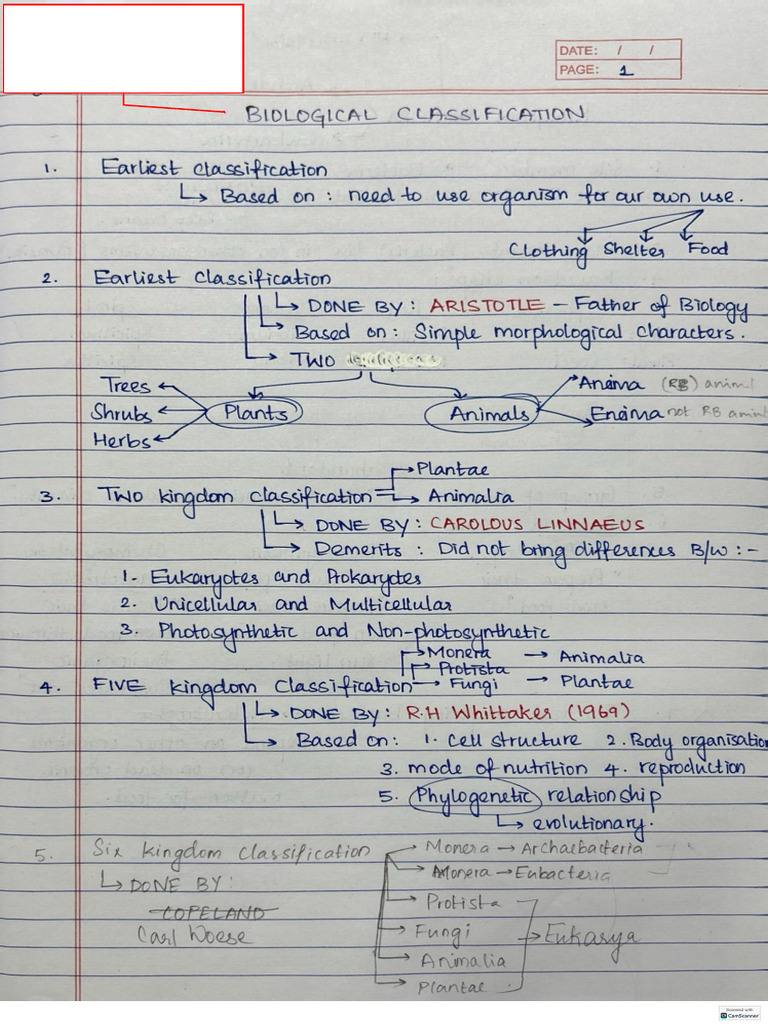 DATE: / /
PAGE: 1
BIOLOGICAL CLASSIFICATION
1. Earliest classification
Based on : need to use organism for our own use.
Clothing Shelter Food
2. Earliest Classification
DONE BY: ARISTOTLE - Father of Biology
Based on: Simple morphological characters.
TWO
Trees
Shrubs
Herbs
Plants
Animals
Anaima (RB) animl
Enaima not RB animl
3. TWO kingdom classification
Plantae
Animalia
DONE BY: CAROLOUS LINNAEUS
Demerits : Did not bring differences B/w :-
1. Eukaryotes and Prokaryotes
2. Unicellular and Multicellular
3. Photosynthetic and Non-photosynthetic
4. FIVE kingdom Classification
Monera → Animalia
Protista
Fungi → Plantae
DONE BY: R.H Whittaker (1969)
Based on: 1. Cell structure 2. Body organisation
3. mode of nutrition 4. reproduction
5. Phylogenetic relationship
evolutionary.
5. Six kingdom classification
DONE BY:
COPELAND
Carl Woese
Monera → Archaebacteria
Monera → Eubacteria
Protista
Fungi
Animalia
Plantae
Eukarya
Scanned with
CamScanner